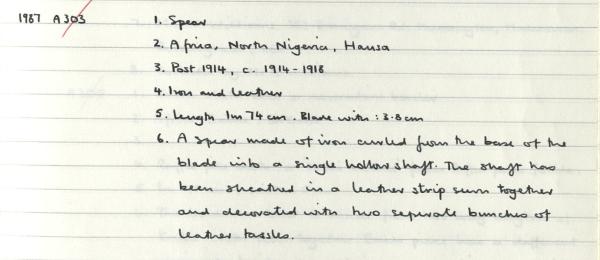 1987 A303 1. Spear
2. Africa, North Nigeria, Hausa
3. Post 1914, c. 1914-1918
4. Iron and leather
5. Length 1m 74 cm. Blade with: 3.8cm
6. A spear made of iron curled from the base of the
blade into a single hollow shaft. The shaft has
been sheathed in a leather strip sewn together
and decorated with two seperate bunches of
leather tassles.